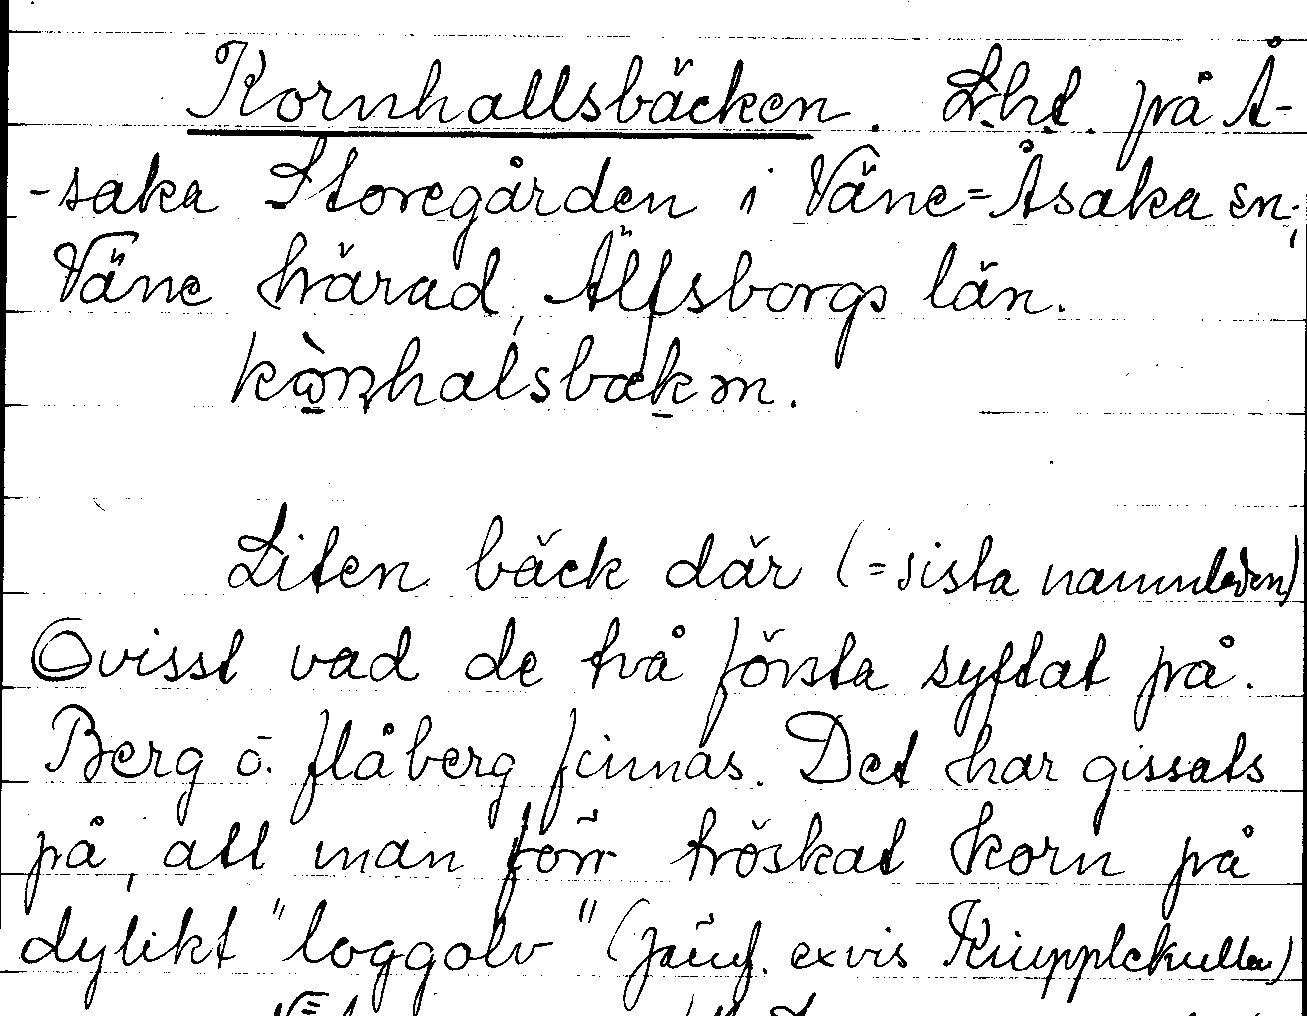 Kornhallsbäcken. Lht. på Å-
-saka Storegården i Väne=Åsaka sn;
Väne härad, Älfsborgs län.
Liten bäck där (=sista namnleden)
Ovisst vad de två första syftat på.
Berg o. flåberg finnas. Det har gissats
på, att man förr tröskat korn på
dylikt "loggolv" (jämf. exvis